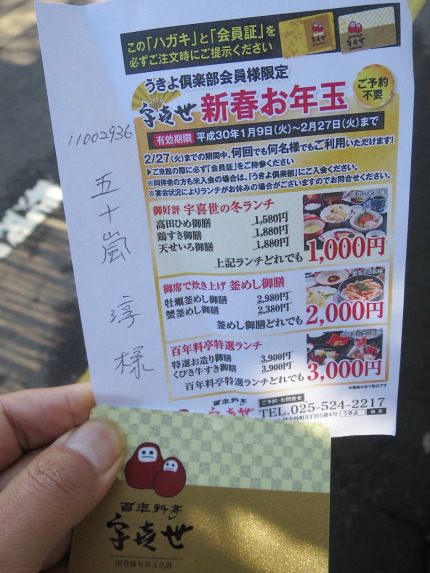 この「ハガキ」と「会員証」を
必ずご注文時にご提示ください
うきよ倶楽部会員様限定
宇喜世 新春お年玉
ご予約
不要
有効期限 平成30年1月9日(火)~2月27日(火)まで
2/27(火)までの期間中、何回でも何名様でもご利用いただけます!
▶ご来館の際に必ず「会員証」をご持参ください
※同伴者の方も未入会の場合は、「うきよ倶楽部」にご入会ください。
※宴会状況によりランチがお休みの場合がございますのでお問合せください。
11002936
五十嵐 淳 様
御好評 宇喜世の冬ランチ
高田ひめ御膳 1,580円
鶏すき御膳 1,880円
天せいろ御膳 1,880円
上記ランチどれでも 1,000円
御席で炊き上げ 釜めし御膳
牡蠣釜めし御膳 2,980円
蟹釜めし御膳 2,380円
釜めし御膳どれでも 2,000円
百年料亭特選ランチ
特選お造り御膳 3,900円
くびき牛すき御膳 3,900円
百年料亭特選ランチどれでも 3,000円
ご予約・お問合せ
TEL.025-524-2217
百年料亭
宇喜世
国登録有形文化財